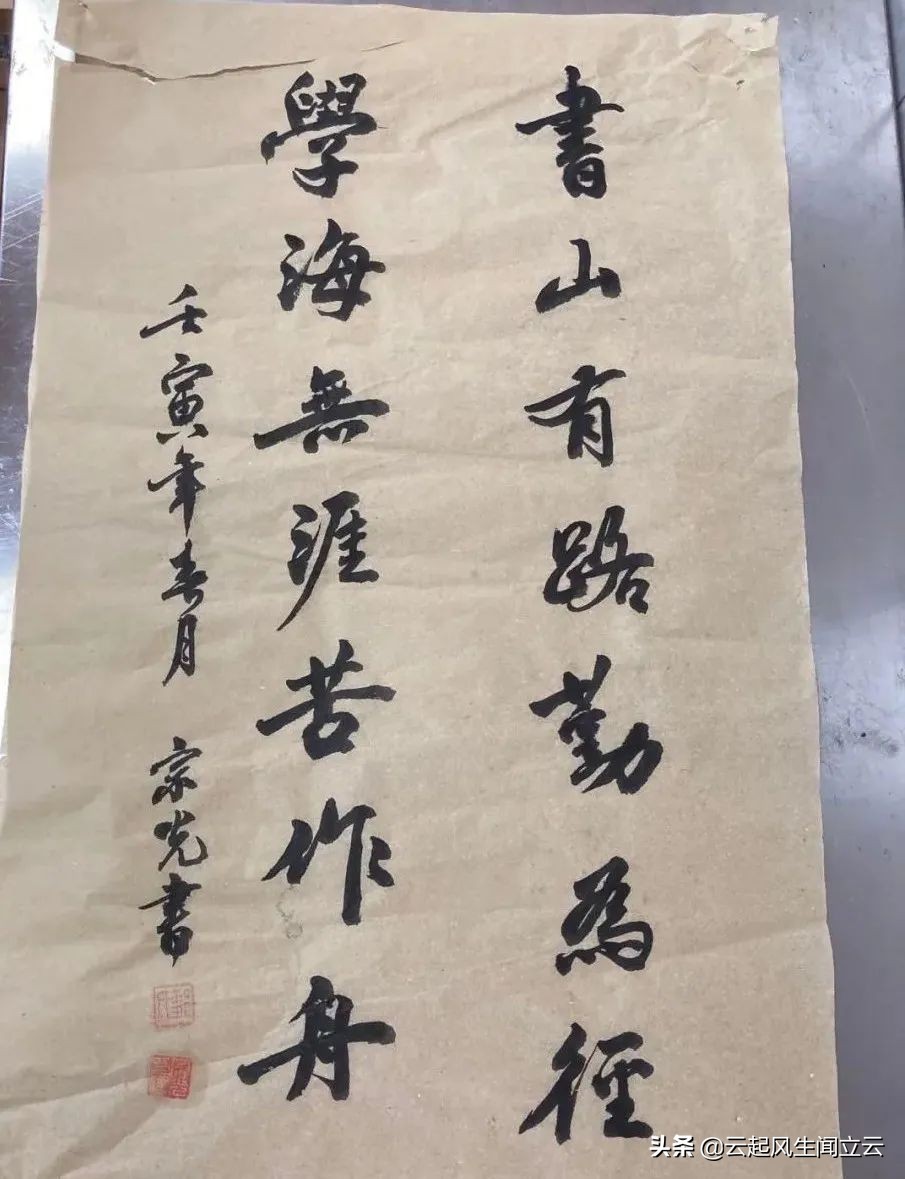 書山有路勤為徑
學海無涯苦作舟
壬寅年春月 宗光書
头条 @云起风生闻立云